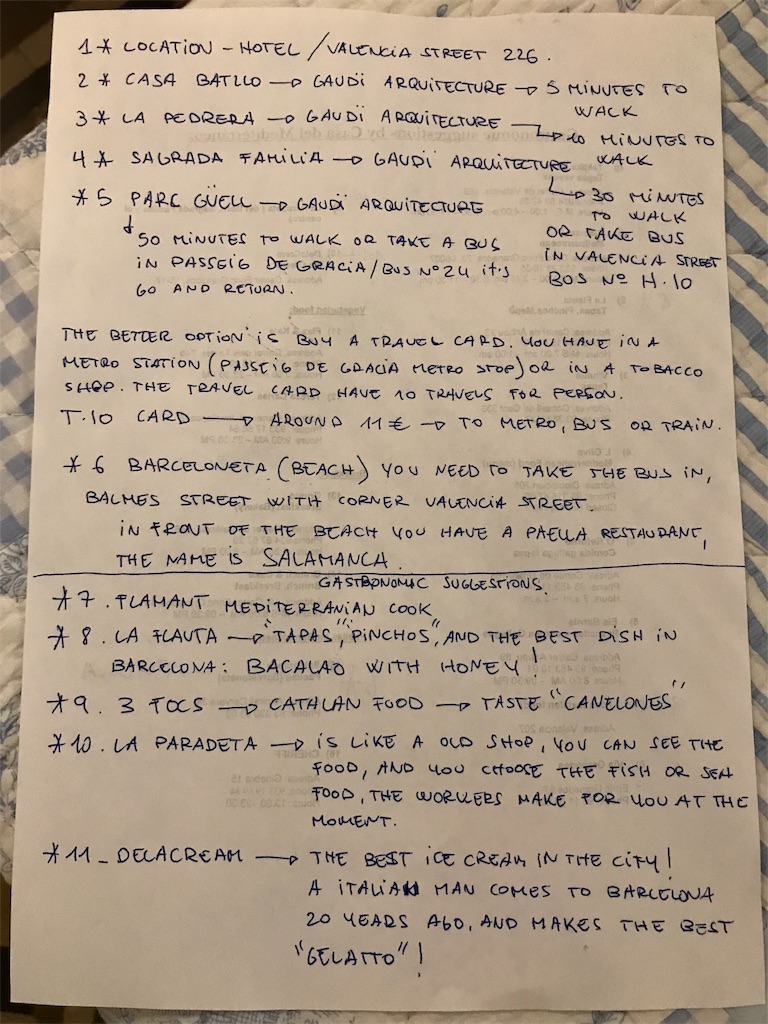 1* LOCATION - HOTEL / VALENCIA STREET 226.
2* CASA BATLLO → GAUDÏ ARQUITECTURE → 5 MINUTES TO WALK
3* LA PEDRERA → GAUDÏ ARQUITECTURE → 10 MINUTES TO WALK
4* SAGRADA FAMILIA → GAUDÏ ARQUITECTURE → 30 MINUTES
TO WALK
OR TAKE BUS
IN VALENCIA STREET
BOS Nº H.10
*5 PARC GÜELL → GAUDÏ ARQUITECTURE
↓ 50 MINUTES TO WALK OR TAKE A BUS
IN PASSEIG DE GRACIA / BUS Nº 24 it's
GO AND RETURN.
THE BETTER OPTION IS BUY A TRAVEL CARD. YOU HAVE IN A
METRO STATION (PASSEIG DE GRACIA METRO STOP) OR IN A TOBACCO
SHOP. THE TRAVEL CARD HAVE 10 TRAVELS FOR PERSON.
T.10 CARD → AROUND 11€ → TO METRO, BUS OR TRAIN.
*6 BARCELONETA (BEACH) YOU NEED TO TAKE THE BUS IN,
BALMES STREET WITH CORNER VALENCIA STREET.
IN FRONT OF THE BEACH YOU HAVE A PAELLA RESTAURANT,
THE NAME IS SALAMANCA.
GASTRONOMIC SUGGESTIONS.
*7. FLAMANT MEDITERRANIAN COOK
*8. LA FLAUTA → "TAPAS", "PINCHOS", AND THE BEST DISH IN
BARCELONA: BACALAO WITH HONEY!
*9. 3 FOCS → CATHALAN FOOD → TASTE "CANELONES"
*10. LA PARADETA → IS LIKE A OLD SHOP, YOU CAN SEE THE
FOOD, AND YOU CHOOSE THE FISH OR SEA
FOOD, THE WORKERS MAKE FOR YOU AT THE
MOMENT.
*11_ DELACREAM → THE BEST ICE CREAM IN THE CITY!
A ITALIAN MAN COMES TO BARCELONA
20 YEARS AGO, AND MAKES THE BEST
"GELATTO"!